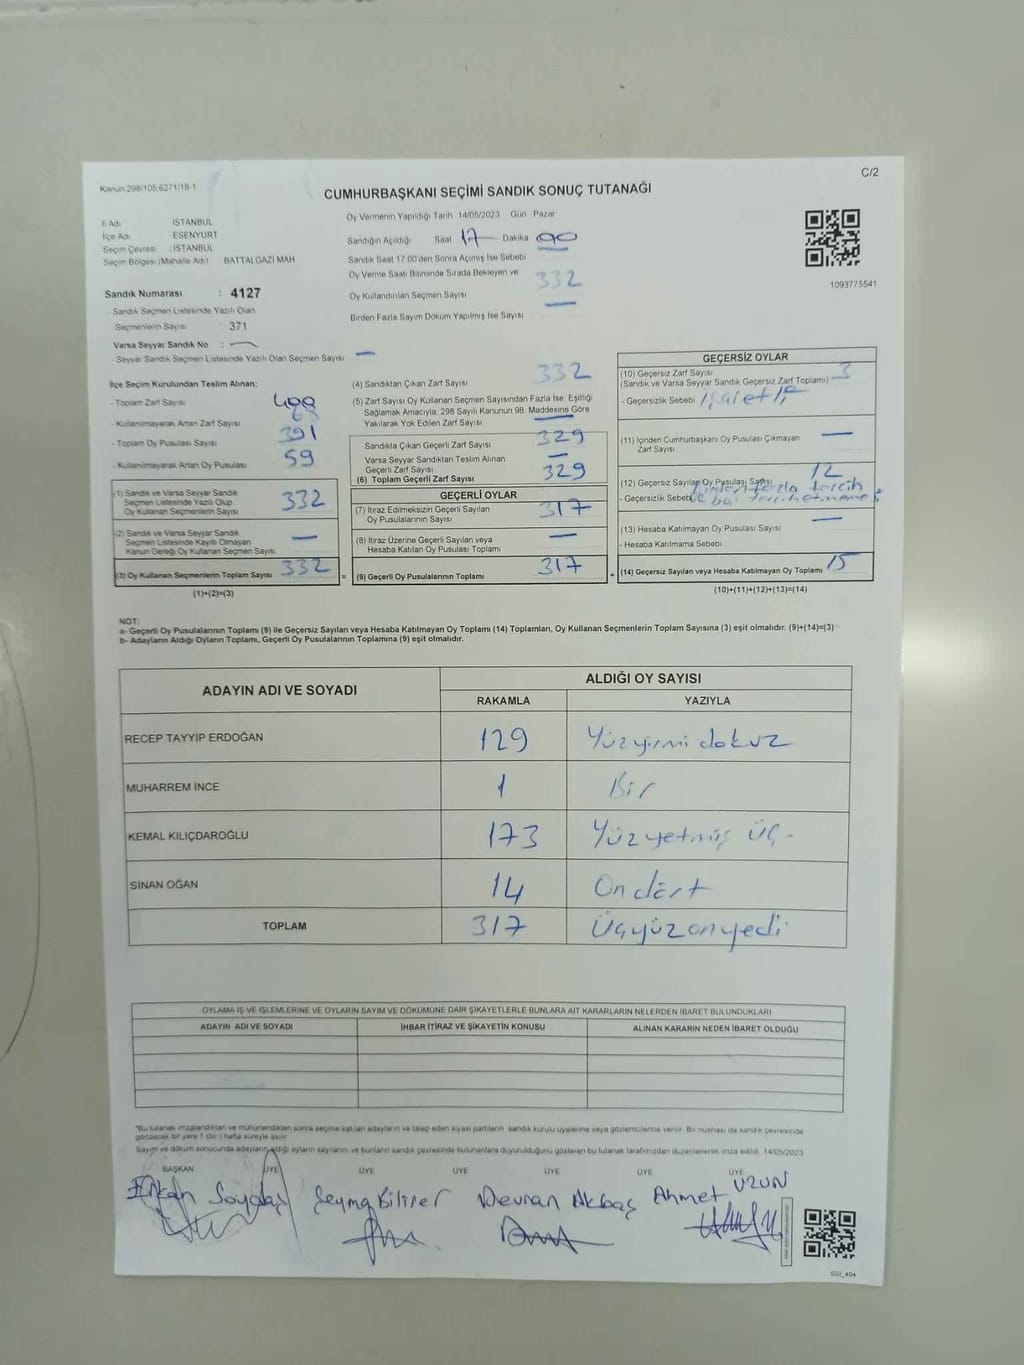 C/2
Kanun.298/105.6271/18-1
CUMHURBAŞKANI SEÇİMİ SANDIK SONUÇ TUTANAĞI
İl Adı : İSTANBUL
İlçe Adı : ESENYURT
Seçim Çevresi : İSTANBUL
Seçim Bölgesi (Mahalle Adı) : BATTALGAZİ MAH
Sandık Numarası : 4127
- Sandık Seçmen Listesinde Yazılı Olan
Seçmenlerin Sayısı : 371
Varsa Seyyar Sandık No : —
- Seyyar Sandık Seçmen Listesinde Yazılı Olan Seçmen Sayısı —
Oy Vermenin Yapıldığı Tarih 14/05/2023 Gün Pazar
Sandığın Açıldığı Saat 17 Dakika 00
Sandık Saat 17:00'den Sonra Açılmış İse Sebebi —
Oy Verme Saati Bitiminde Sırada Bekleyen ve
Oy Kullandırılan Seçmen Sayısı 332
Birden Fazla Sayım Döküm Yapılmış İse Sayısı —
1093775541
İlçe Seçim Kurulundan Teslim Alınan;
- Toplam Zarf Sayısı
- Kullanılmayarak Artan Zarf Sayısı 68
- Toplam Oy Pusulası Sayısı 391
- Kullanılmayarak Artan Oy Pusulası 59
(1) Sandık ve Varsa Seyyar Sandık
Seçmen Listesinde Yazılı Olup
Oy Kullanan Seçmenlerin Sayısı 332
(2) Sandık ve Varsa Seyyar Sandık
Seçmen Listesinde Kayıtlı Olmayan
Kanun Gereği Oy Kullanan Seçmen Sayısı —
(3) Oy Kullanan Seçmenlerin Toplam Sayısı 332
(1)+(2)=(3)
(4) Sandıktan Çıkan Zarf Sayısı 332
(5) Zarf Sayısı Oy Kullanan Seçmen Sayısından Fazla İse, Eşitliği
Sağlamak Amacıyla, 298 Sayılı Kanunun 98. Maddesine Göre
Yakılarak Yok Edilen Zarf Sayısı —
Sandıkta Çıkan Geçerli Zarf Sayısı 329
Varsa Seyyar Sandıktan Teslim Alınan
Geçerli Zarf Sayısı —
(6) Toplam Geçerli Zarf Sayısı 329
GEÇERLİ OYLAR
(7) İtiraz Edilmeksizin Geçerli Sayılan
Oy Pusulalarının Sayısı 317
(8) İtiraz Üzerine Geçerli Sayılan veya
Hesaba Katılan Oy Pusulası Toplamı —
= (9) Geçerli Oy Pusulalarının Toplamı 317
GEÇERSİZ OYLAR
(10) Geçersiz Zarf Sayısı 3
(Sandık ve Varsa Seyyar Sandık Geçersiz Zarf Toplamı)
- Geçersizlik Sebebi
(11) İçinden Cumhurbaşkanı Oy Pusulası Çıkmayan
Zarf Sayısı —
(12) Geçersiz Sayılan Oy Pusulası Sayısı 12
- Geçersizlik Sebebi birden fazla tercih
(13) Hesaba Katılmayan Oy Pusulası Sayısı —
- Hesaba Katılmama Sebebi
+ (14) Geçersiz Sayılan veya Hesaba Katılmayan Oy Toplamı 15
(10)+(11)+(12)+(13)=(14)
NOT:
a- Geçerli Oy Pusulalarının Toplamı (9) ile Geçersiz Sayılan veya Hesaba Katılmayan Oy Toplamı (14) Toplamları, Oy Kullanan Seçmenlerin Toplam Sayısına (3) eşit olmalıdır. (9)+(14)=(3)
b- Adayların Aldığı Oyların Toplamı, Geçerli Oy Pusulalarının Toplamına (9) eşit olmalıdır.
ADAYIN ADI VE SOYADI ALDIĞI OY SAYISI
RAKAMLA YAZIYLA
RECEP TAYYİP ERDOĞAN 129 Yüzyirmi dokuz
MUHARREM İNCE 1 Bir
KEMAL KILIÇDAROĞLU 173 Yüzyetmiş üç
SİNAN OĞAN 14 On dört
TOPLAM 317 Üçyüzonyedi
OYLAMA İŞ VE İŞLEMLERİNE VE OYLARIN SAYIM VE DÖKÜMÜNE DAİR ŞİKAYETLERLE BUNLARA AİT KARARLARIN NELERDEN İBARET BULUNDUKLARI
ADAYIN ADI VE SOYADI İHBAR İTİRAZ VE ŞİKAYETİN KONUSU ALINAN KARARIN NEDEN İBARET OLDUĞU
*Bu tutanak imzalandıktan ve mühürlendikten sonra seçime katılan adayların ve talep eden siyasi partilerin sandık kurulu üyelerine veya gözlemcilerine verilir. Bir nüshası da sandık çevresinde
görülecek bir yere 1 (bir) hafta süreyle asılır.
Sayım ve döküm sonucunda adayların aldığı oyların sayılarını ve bunların sandık çevresinde bulunanlara duyurulduğunu gösteren bu tutanak tarafımızdan düzenlenerek imza edildi. 14/05/2023
BAŞKAN ÜYE ÜYE ÜYE ÜYE ÜYE ÜYE
Erkan Soydaş Şeyma Bilirer Devran Akbaş Ahmet UZUN
GGI_404